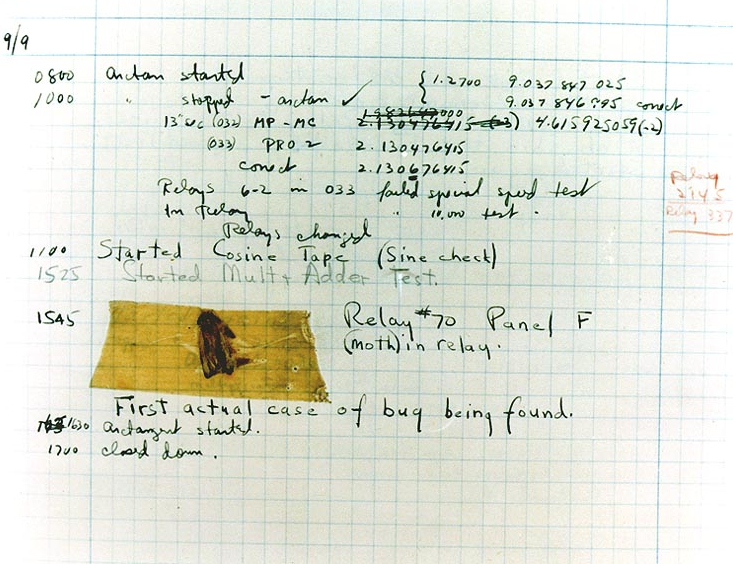 9/9
0800 arctan started { 1.2700 9.037 847 025
1000 " stopped - arctan ✓ 9.037 846 995 correct
13"uc (032) MP - MC 1.982647000 2.130476415 (-3) 4.615925059(-2)
(033) PRO 2 2.130476415
correct 2.130676415
Relays 6-2 in 033 failed special speed test
In Relay " 10,000 test.
Relays changed
Relay
2145
Relay 337
1100 Started Cosine Tape (Sine check)
1525 Started Mult+Adder Test.
1545 Relay #70 Panel F
(moth) in relay.
First actual case of bug being found.
1630 arctangent started.
1700 closed down.